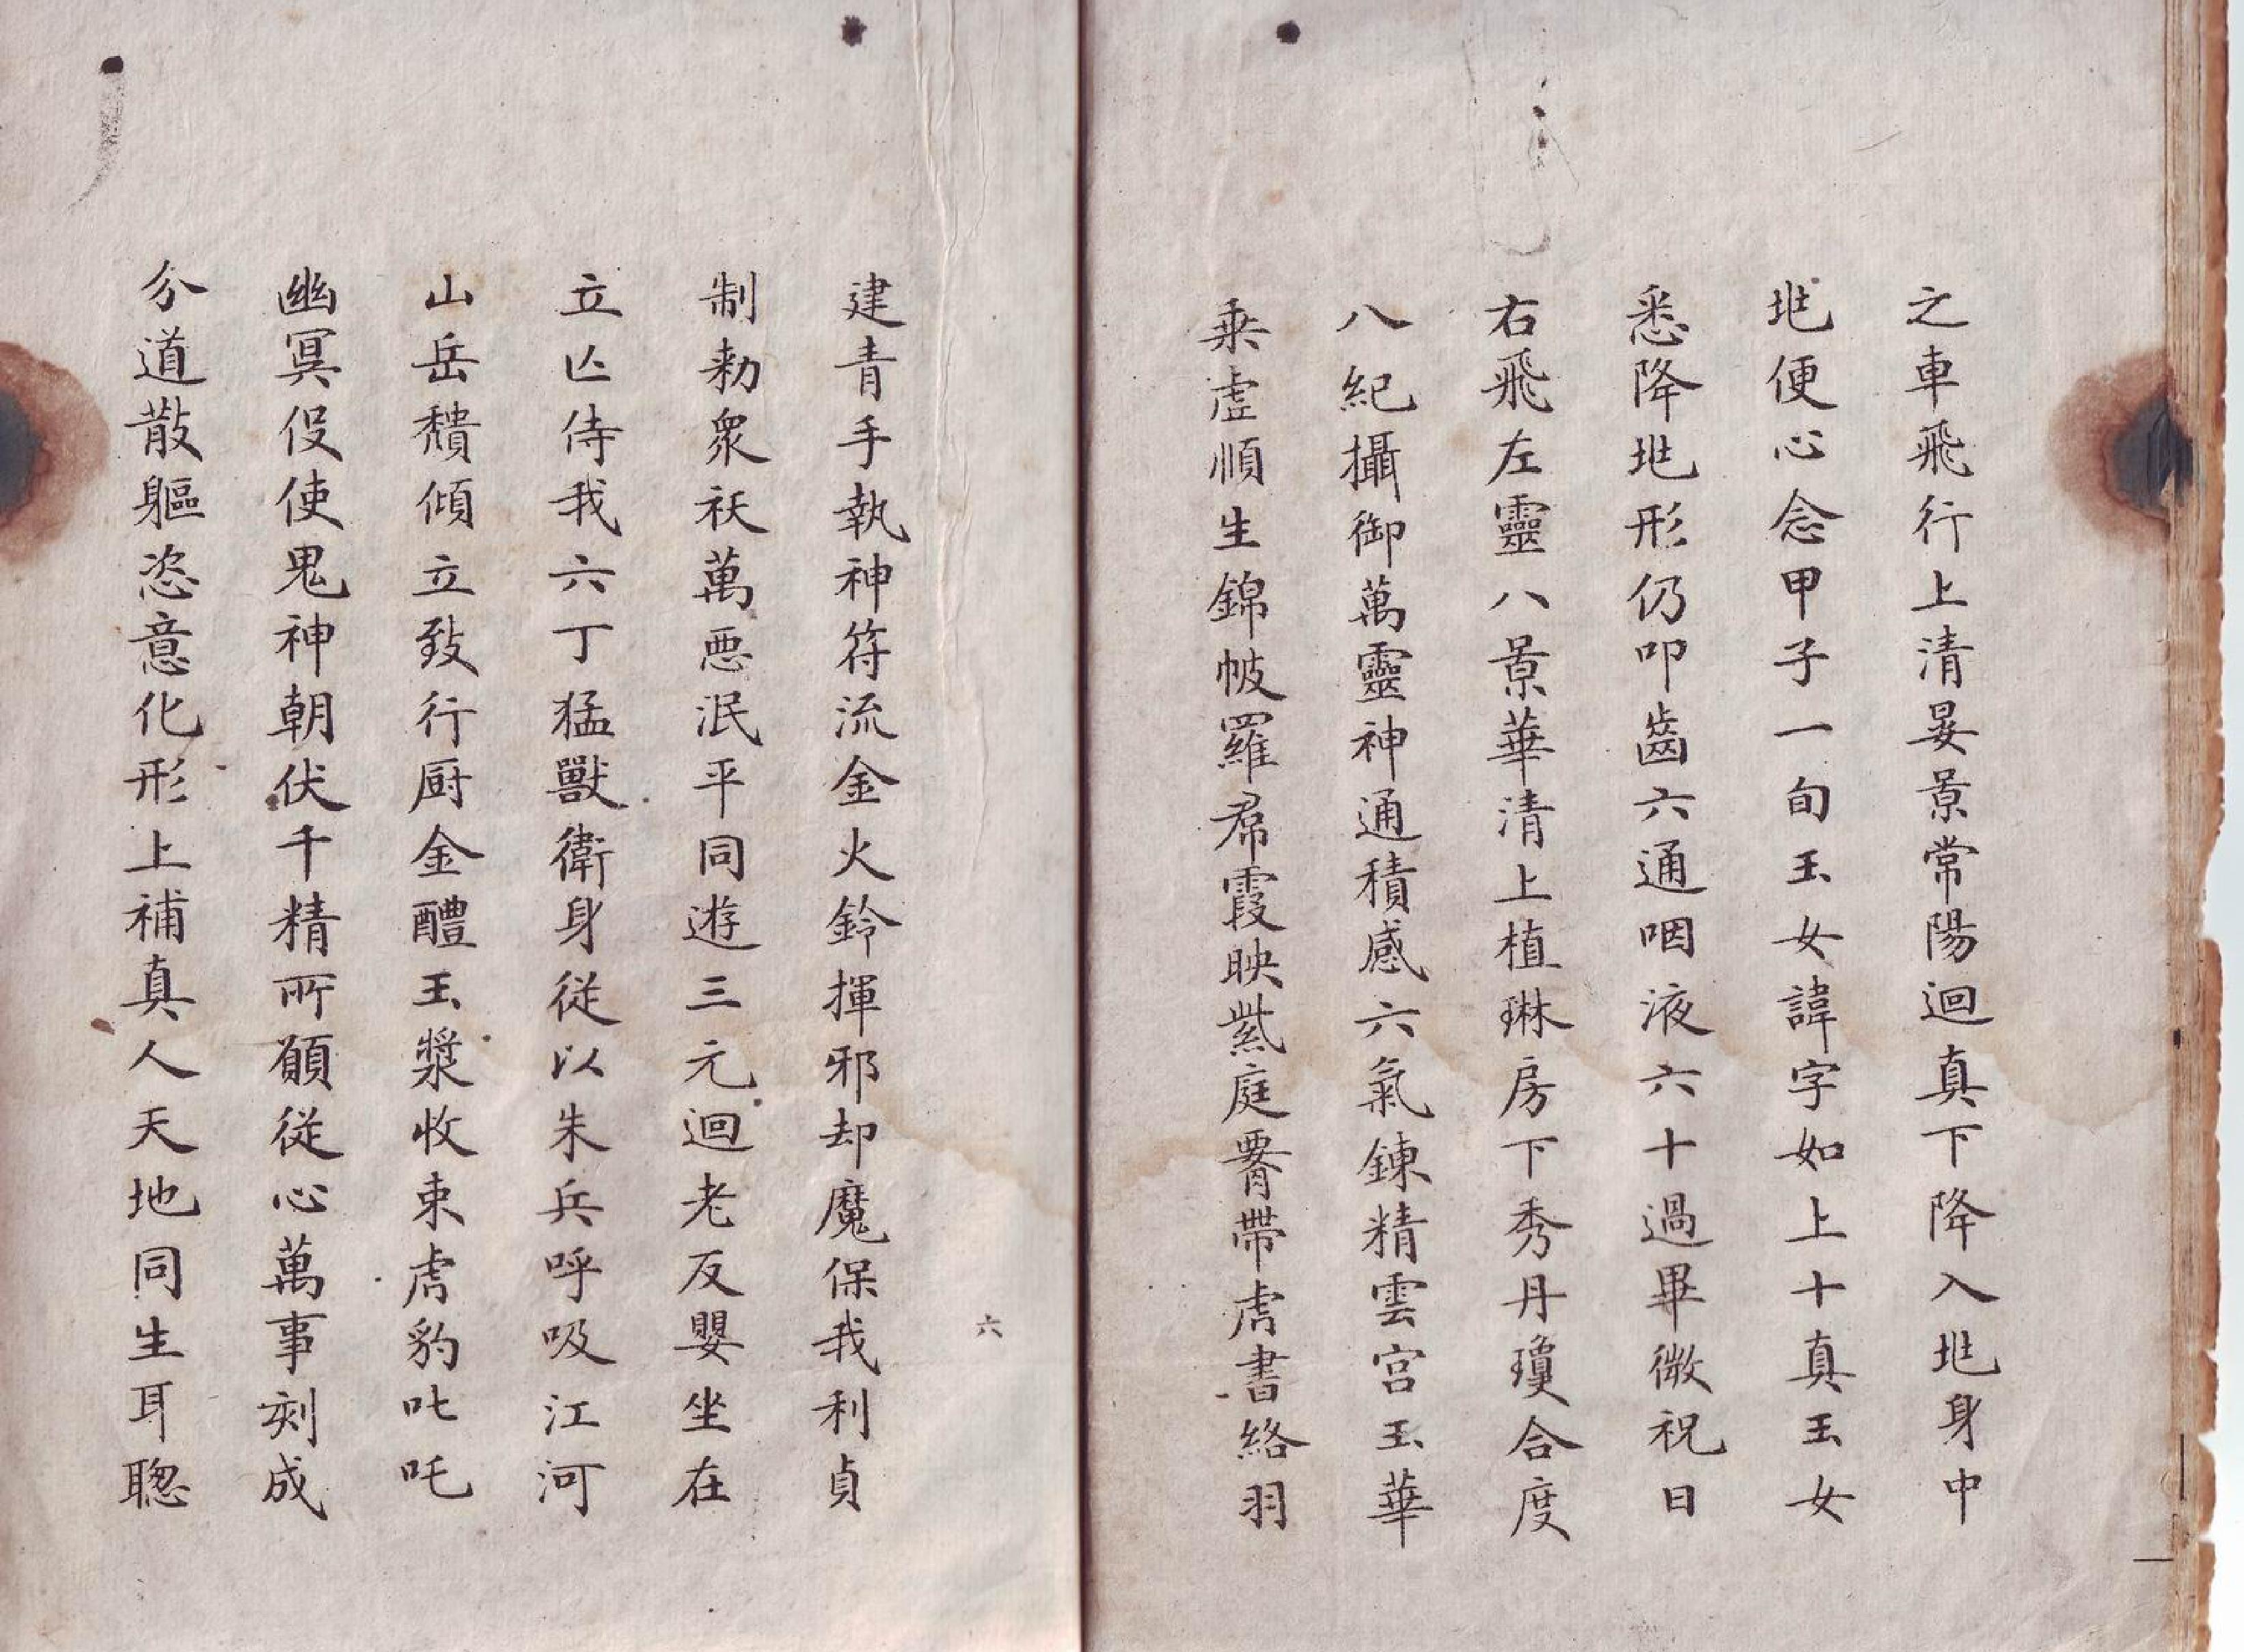 之車飛行上清晏景常陽迴真下降入兆身中
兆便心念甲子一旬玉女諱字如上十真玉女
悉降兆形仍叩齒六通咽液六十過畢微祝曰
右飛左靈八景華清上植琳房下秀丹瓊合度
八紀攝御萬靈神通積感六氣鍊精雲宮玉華
乗虛順生錦帔羅帬霞映紫庭腰帶虎書絡羽
建青手執神符流金火鈴揮邪却魔保我利貞
制勑衆祅萬惡泯平同遊三元迴老反嬰坐在
立亾侍我六丁猛獸衛身從以朱兵呼吸江河
山岳積傾立致行厨金醴玉漿收束虎豹叱吒
幽冥役使鬼神朝伏千精所願從心萬事刻成
分道散軀恣意化形上補真人天地同生耳聰
六